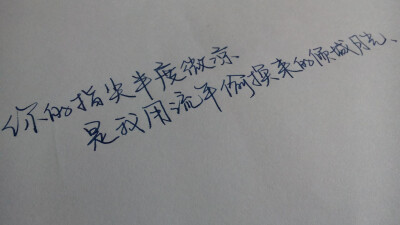 你的指尖半度微凉、
是我用流年偷换来的倾城月光、